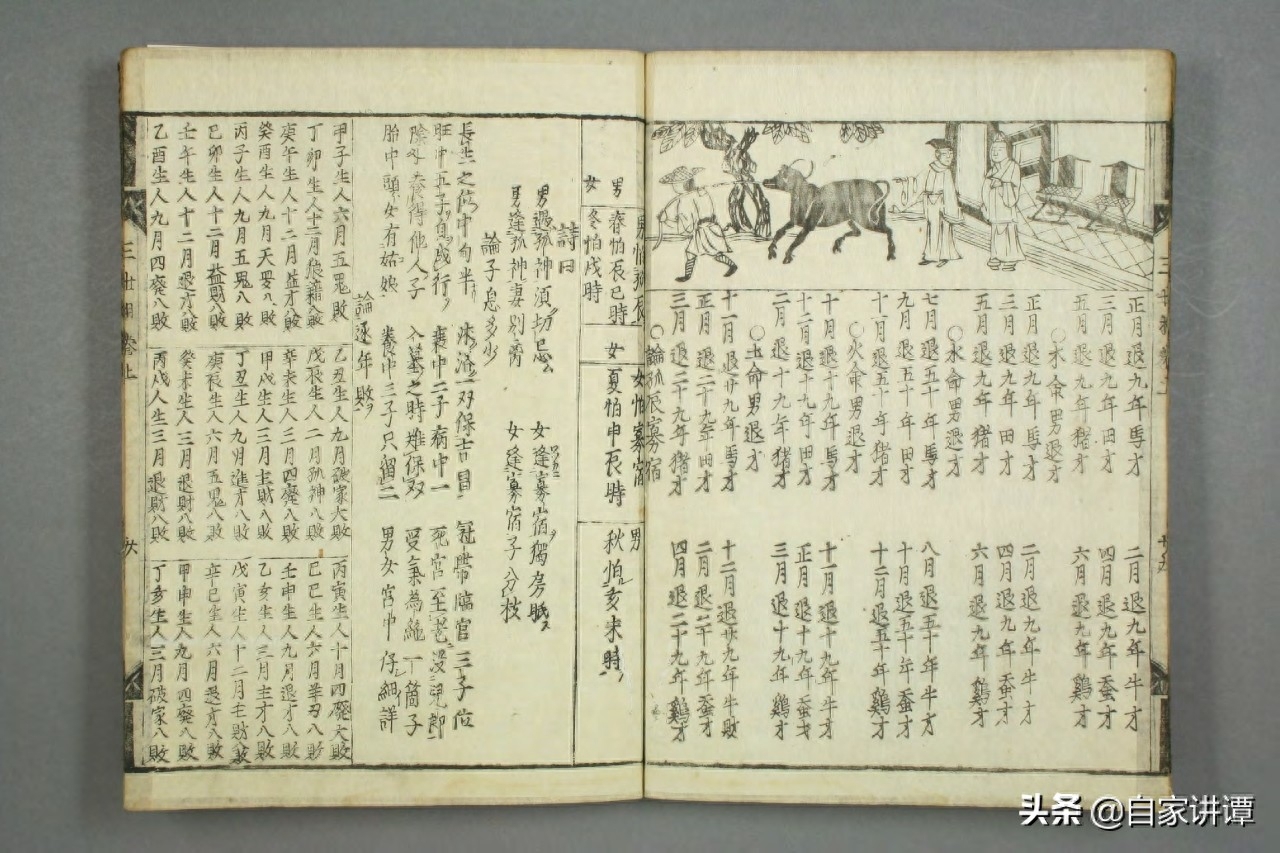 正月退九年馬才 二月退九年牛才
三月退九年田才 四月退九年蚕才
五月退九年猪才 六月退九年鷄才
○木命男退才
正月退九年馬才 二月退九年牛才
三月退九年田才 四月退九年蚕才
五月退九年猪才 六月退九年鷄才
○水命男退才
七月退五十年馬才 八月退五十年牛才
九月退五十年田才 十月退五十年蚕才
十一月退五十年猪才 十二月退五十年鷄才
○火命男退才
十月退十九年馬才 十一月退十九年牛才
十二月退十九年田才 正月退十九年蚕才
二月退十九年猪才 三月退十九年鷄才
○土命男退才
十一月退廿九年馬才 十二月退廿九年牛財
正月退二十九年田才 二月退二十九年蚕才
三月退二十九年猪才 四月退二十九年鷄才
○論孤辰寡宿
男怕孤辰 女怕寡宿
男 春怕辰巳時 女 夏怕申辰時 男 秋怕亥未時
女 冬怕戌時
詩曰
男遇孤神須切忌 女逢寡宿獨房眠
男逢孤神妻別嫁 女逢寡宿子分枝
論子息多少
長生之位中旬半 沐浴一双保吉昌 冠帶臨官三子位
旺中五子自成行 衰中二子病中一 死宮至老没兒郎
除非養得他人子 入墓之時难保双 受氣為絶一箇子
胎中頭女有姑娘 養中三子只留二 男女宮中仔細詳
論逐年敗
甲子生人六月五鬼敗 乙丑生人九月破家大敗 丙寅生人十月四廢大敗
丁卯生人十二月狼藉八敗 戊辰生人二月孤神八敗 己巳生人六月八敗
庚午生人十二月益才八敗 辛未生人三月四廢八敗 壬申生人九月退才八敗
癸酉生人九月天八敗 甲戌生人三月主財八敗 乙亥生人三月主才八敗
丙子生人九月五鬼八敗 丁丑生人九月進才八敗 戊寅生人十二月主財八敗
己卯生人十二月益財八敗 庚辰生人六月五鬼八敗 辛巳生人六月退才八敗
壬午生人十二月退才八敗 癸未生人三月退財八敗 甲申生人九月四廢八敗
乙酉生人九月四廢八敗 丙戌人生三月退財八敗 丁亥生人三月破家八敗
三世相卷上
头条 @自家讲谭